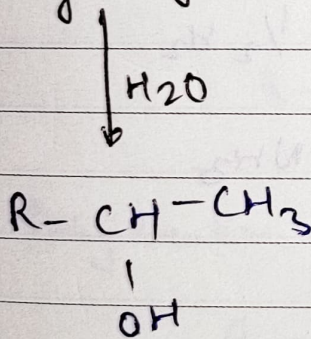 H2O
R- CH-CH3
OH